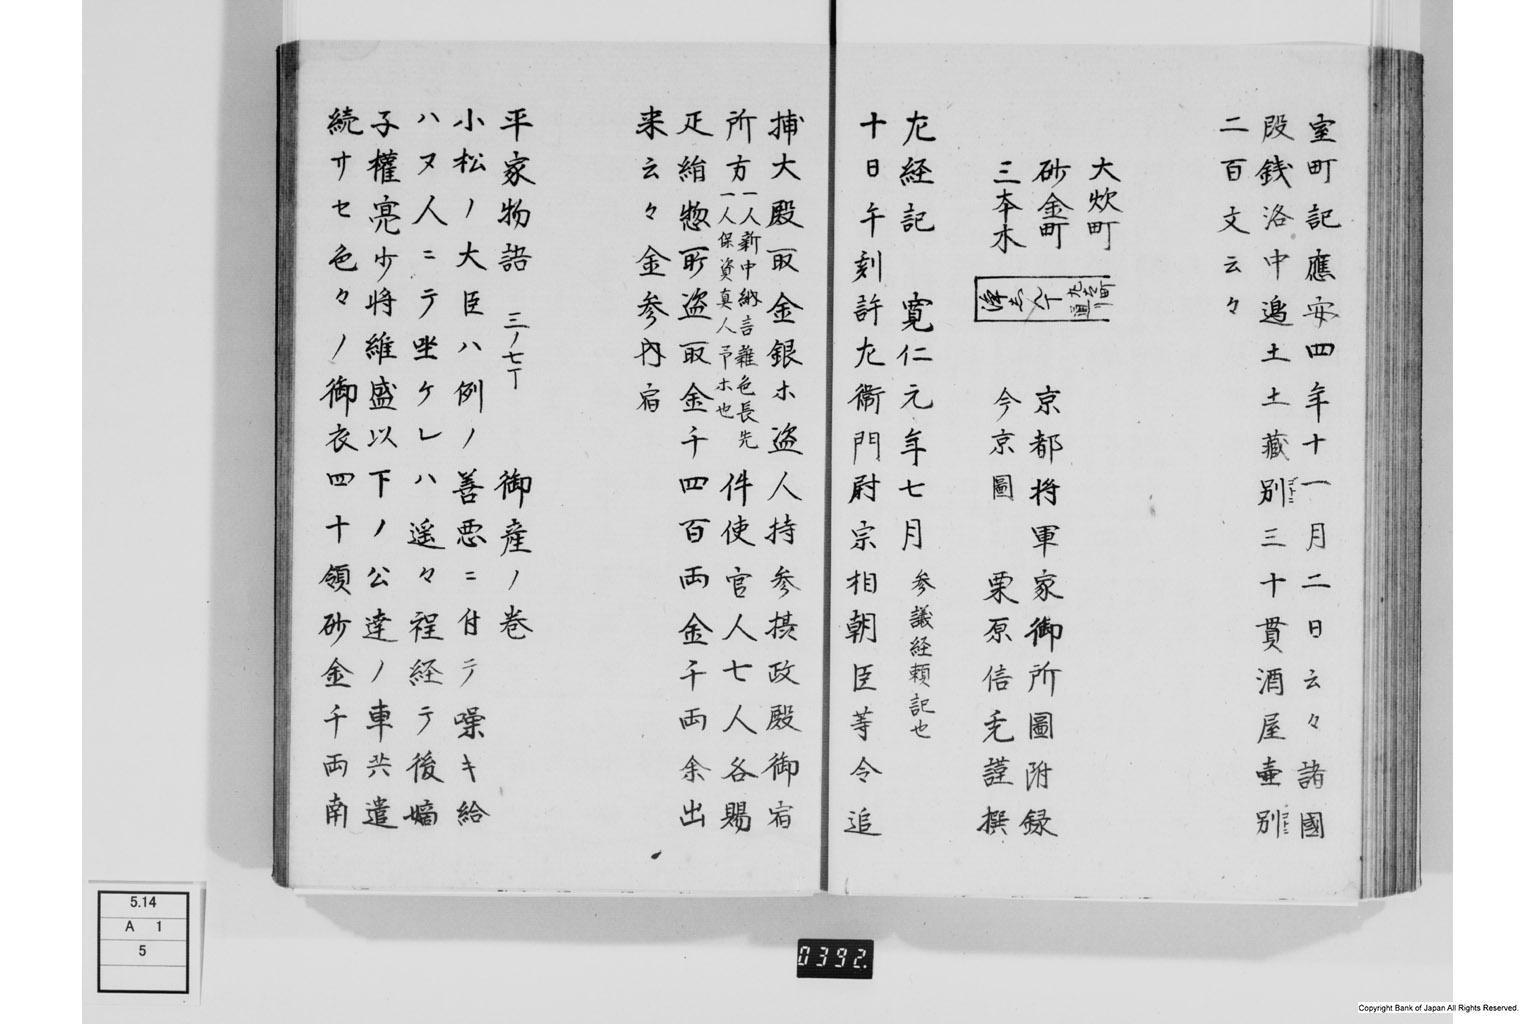 室町記應安四年十一月二日云々諸國
段銭洛中邉土土藏別ゴトニ三十貫酒屋壷別ゴトニ
二百文云々
大炊町
砂金町
三本木
京都将軍家御所圖附録
今京圖 栗原信充謹撰
左経記 寛仁元年七月 参議経頼記也
十日午刻許左衛門尉宗相朝臣等令追
捕大殿取金銀ホ盗人持参摂政殿御宿
所方一人新中納言雜色長先一人保資真人弔ホ也件使官人七人各賜
疋絹惣所盗取金千四百両金千両余出
来云々金参内宿
平家物語 三ノ七丁 御産ノ巻
小松ノ大臣ハ例ノ善悪ニ付テ噪キ給
ハヌ人ニテ坐ケレハ遥々程経テ後嫡
子權亮少将維盛以下ノ公達ノ車共遣
続サセ色々ノ御衣四十領砂金千両南
5.14
A 1
5
0392.
Copyright Bank of Japan All Rights Reserved.